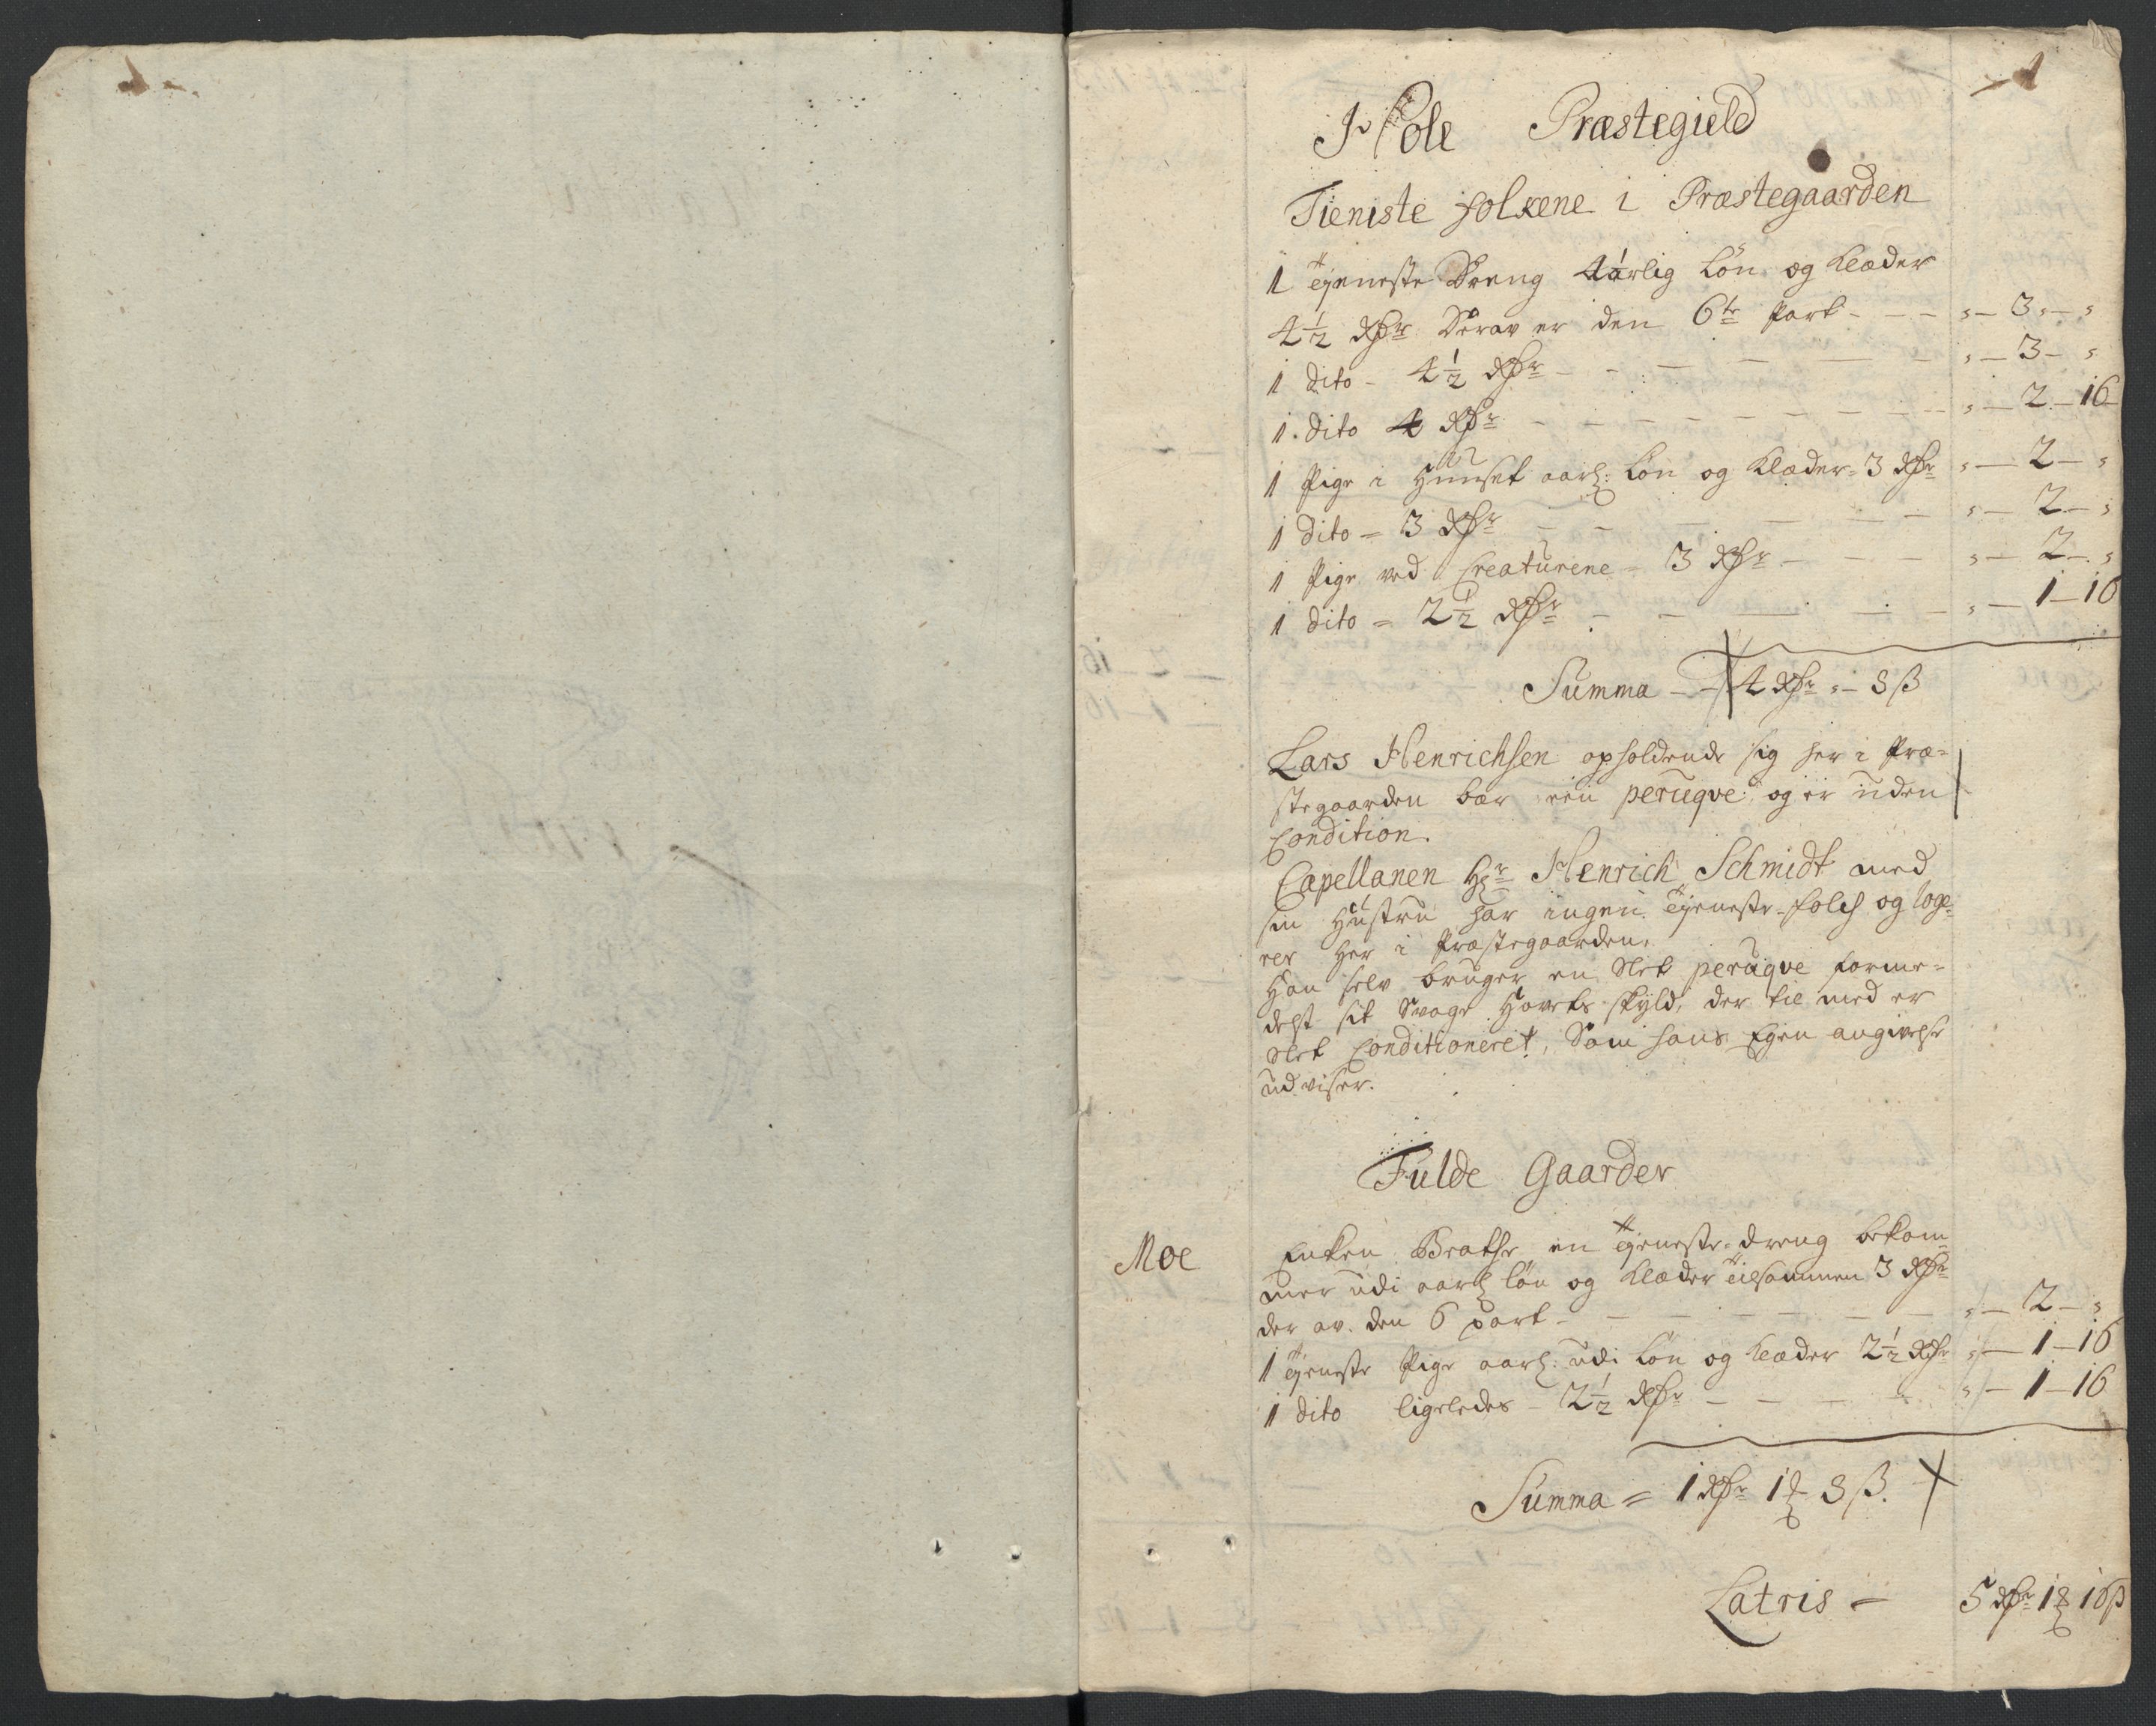 1
Hole Præstegield
Tieniste folkene i Præstegaarden
1 tjeneste Dreng Aarlig Løn og Klæder
4½ Rdr Derav er den 6te Part - - - „ - 3 - „
1 dito - 4½ Rdr - - - - „ - 3 - „
1 dito 4 Rdr - - - - „ - 2 - 16
1 Pige i Huuset aarl: Løn og Klæder = 3 Rdr „ - 2 - „
1 dito = 3 Rdr - - - - „ - 2 - „
1 Pige ved Creaturene - 3 Rdr - - - „ - 2 - „
1 dito = 2½ Rdr - - - - „ - 1 - 16
Summa - - 4 Rdr „ - 8 β
Lars Henrichsen opholdende sig her i Præ-
stegaarden bær een peruqve og er uden
Condition.
Capellanen Hr Henrich Schmidt med
sin Hustru har ingen tjeneste-folch og loge-
rer her i Præstegaarden.
Han selv bruger en slet peruqve forme-
delst sit Svage Hovets skyld, der til med er
slet Conditioneret, Som hans Egen angivelse
udviser.
Fulde Gaarder
Moe Enken Brathe en tjeneste-dreng bekom-
mer udi aarl løn og Klæder tilsammen 3 Rdr
der av den 6 part - - - - „ - 2 - „
1 tjeneste Pige aarl: udi Løn og Klæder 2½ Rdr „ - 1 - 16
1 dito ligeledes - 2½ Rdr - - - „ - 1 - 16
Summa = 1 Rdr 1 ℔ 8 β.
Latris - 5 Rdr 1 ℔ 16 β